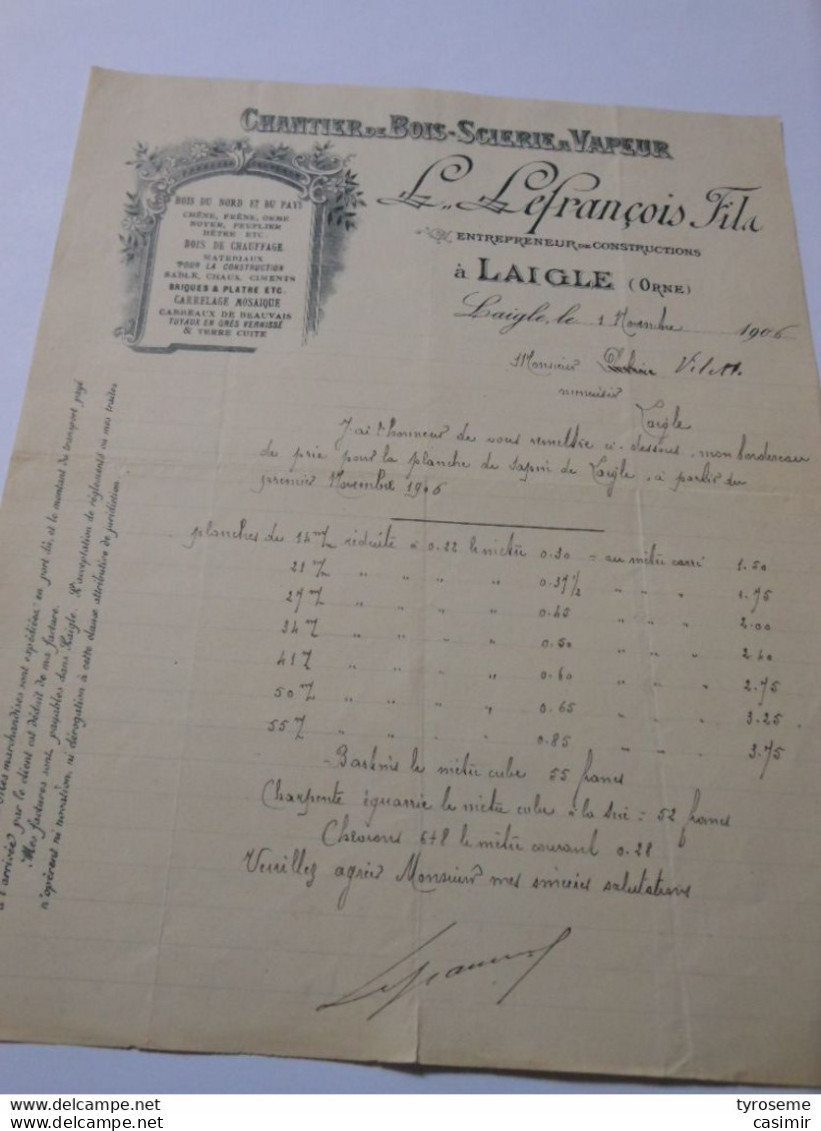 CHANTIER DE BOIS-SCIERIE A VAPEUR
L. Lefrançois Fils
ENTREPRENEUR DE CONSTRUCTIONS
à LAIGLE (ORNE)
BOIS DU NORD ET DU PAYS
CHÊNE, FRÊNE, ORME
NOYER, PEUPLIER
HÊTRE ETC
BOIS DE CHAUFFAGE
MATERIAUX
POUR LA CONSTRUCTION
SABLE, CHAUX, CIMENTS
BRIQUES & PLATRE ETC.
CARRELAGE MOSAIQUE
CARREAUX DE BEAUVAIS
TUYAUX EN GRÉS VERNISSÉ
& TERRE CUITE
Laigle, le 1 Novembre 1906
Monsieur
menuisier
Laigle
J'ai l'honneur de vous remettre ci-dessous, mon bordereau
de prix pour la planche de sapin de Laigle, à partir du
premier Novembre 1906
planches de 14 m/m réduite à 0.22 le mètre 0.30 = au mètre carré 1.50
21 m/m " " " " 0.37½ " " " 1.75
27 m/m " " " " 0.45 " " " 2.00
34 m/m " " " " 0.50 " " " 2.40
41 m/m " " " " 0.60 " " " 2.75
50 m/m " " " " 0.65 " " " 3.25
55 m/m " " " " 0.85 " " " 3.75
le mètre cube 55 francs
Charpente équarrie le mètre cube à la scie = 52 francs
Chevrons 6+8 le mètre courant 0.28
Veuillez agréer Monsieur mes sincères salutations
Lefrançois
Mes marchandises sont expédiées en port dû, et le montant du transport payé
à l'arrivée par le client est déduit de ma facture.
Mes factures sont payables dans Laigle. L'acceptation de règlements ou mes traites
n'opèrent ni novation, ni dérogation à cette clause attributive de juridiction
tyroseme
www.delcampe.net
casimir